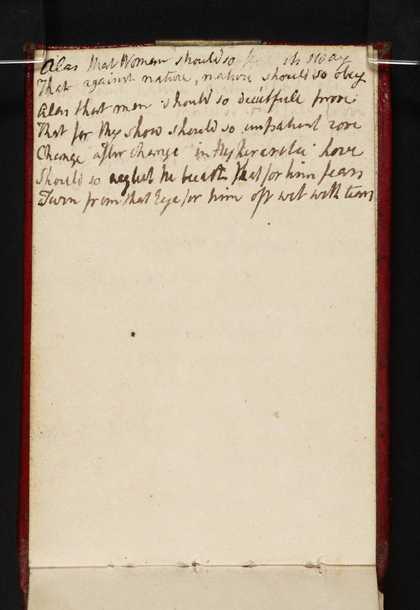 Alas that Women should so its sway
That against nature, nature should so obey
Alas that men should so deceitfull prove
That for they show should so impatient rove
Change after change in they love
Should so neglect the breath that for him fears
Turn from that Eye for him oft wet with tears